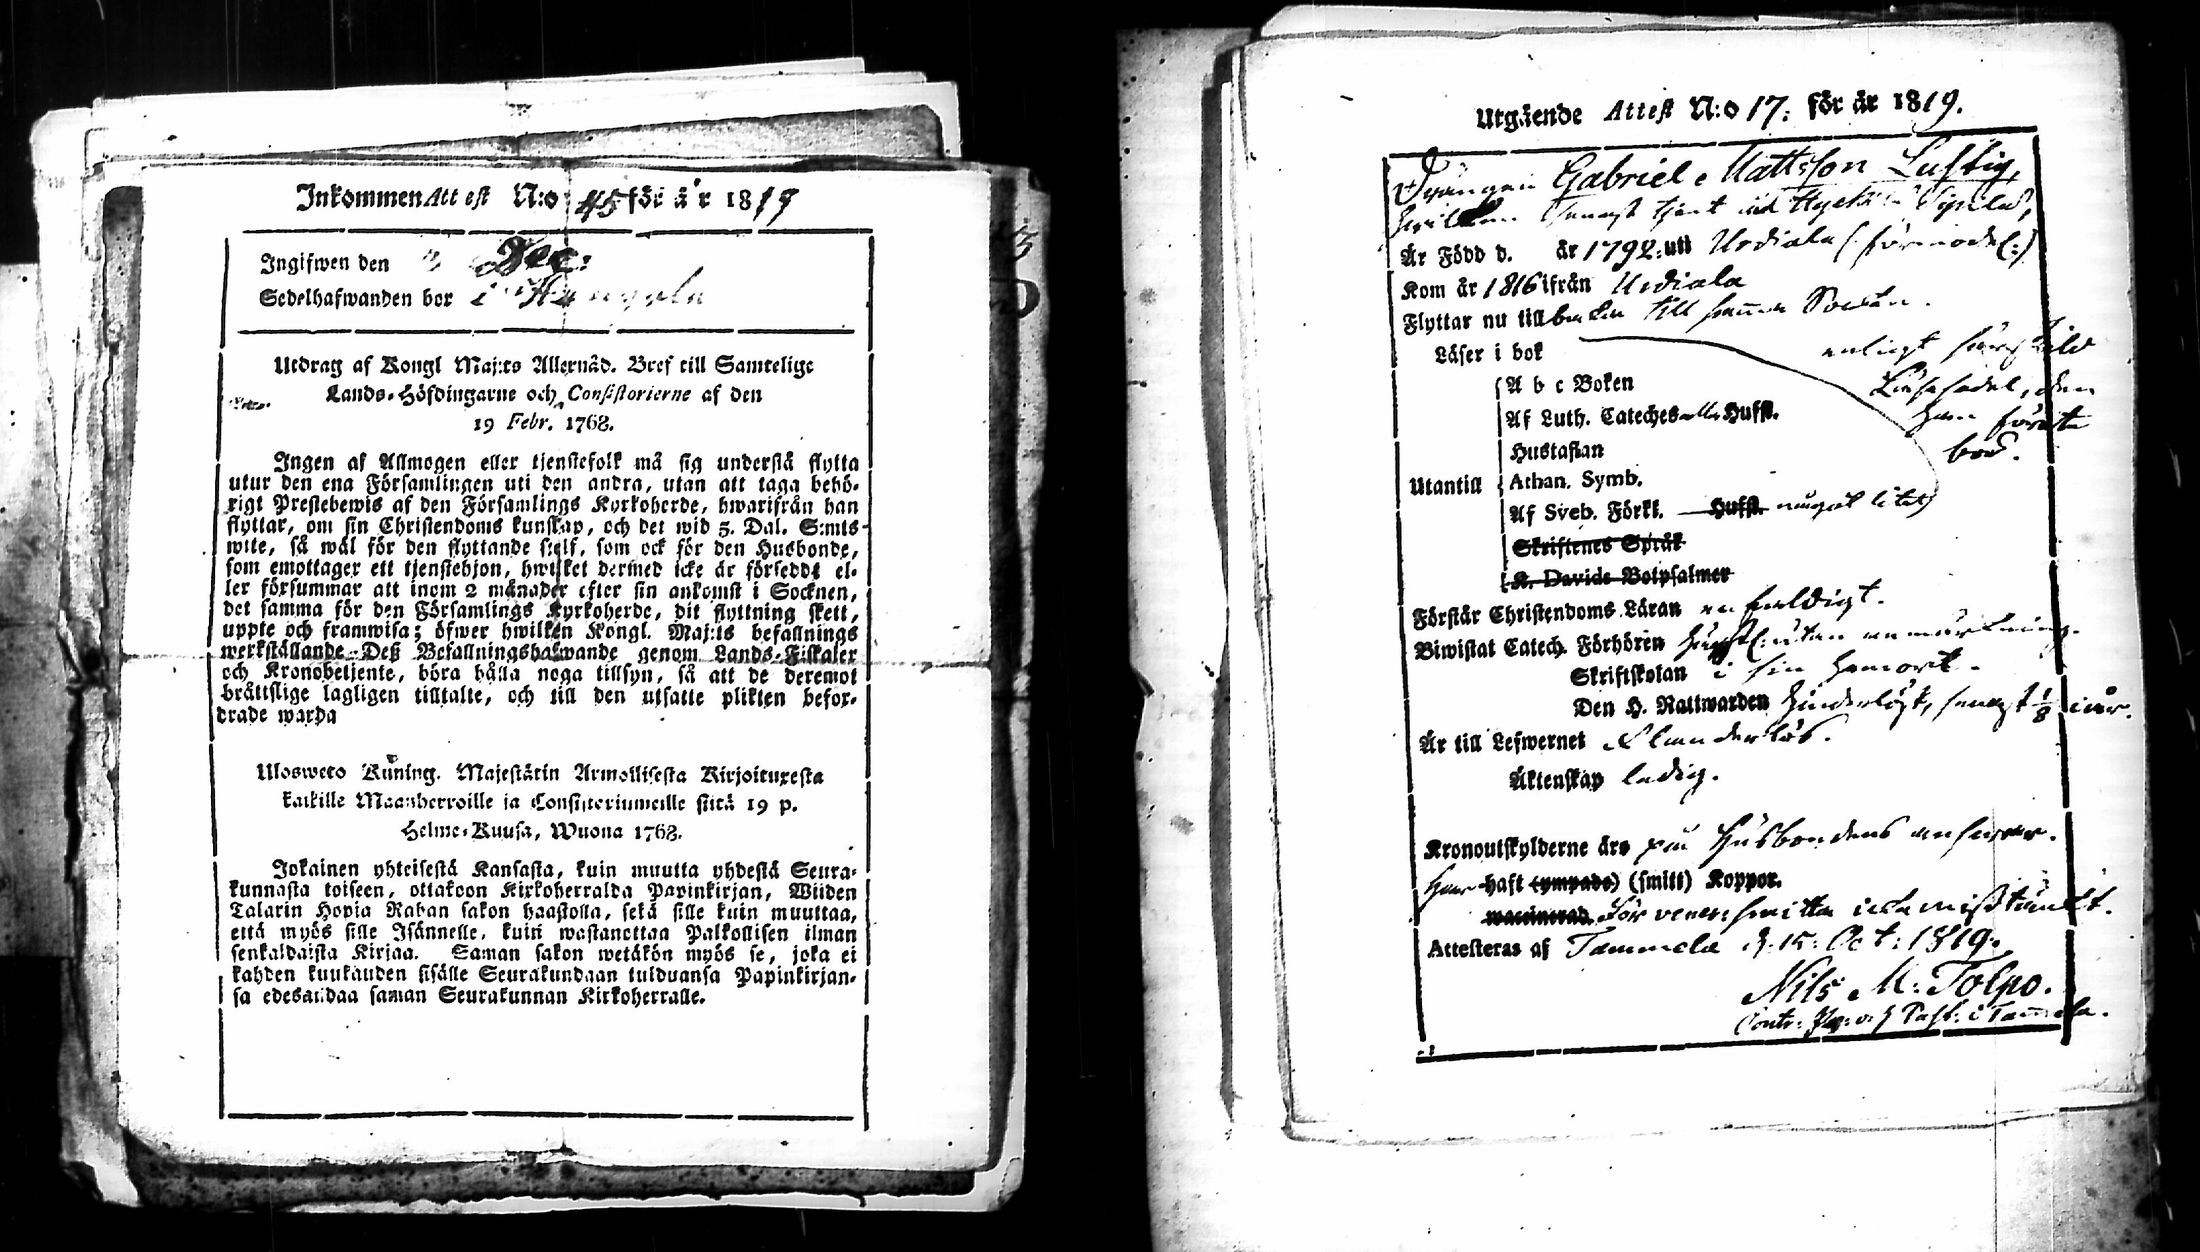 Inkommen Attest N:o 45 för år 1819
Ingifwen den Dec:
Sedelhafwanden bor i
Utdrag af Kongl Maj:ts Allernåd. Bref till Samtelige
Lands-Höfdingarne och Consistorierne af den
19 Febr. 1768.
Ingen af Allmogen eller tjenstefolk må sig understå flytta
utur den ena Församlingen uti den andra, utan att taga behö-
rigt Prestebewis af den Församlings Kyrkoherde, hwarifrån han
flyttar, om sin Christendoms kunskap, och det wid 5. Dal. S:mts
wite, så wäl för den flyttande sjelf, som ock för den Husbonde,
som emottager ett tjenstehjon, hwilket dermed icke är förseddt el-
ler försummar att inom 2 månader efter sin ankomst i Socknen,
det samma för den Församlings Kyrkoherde, dit flyttning skett,
uppte och framwisa; öfwer hwilken Kongl. Maj:ts befallnings
werkställande Deß Befallningshafwande genom Lands-Fiskaler
och Kronobetjente, böra hålla noga tillsyn, så att de deremot
bråttslige lagligen tilltalte, och till den utsatte plikten befor-
drade warda
Ulosweto Kuning. Majestätin Armollisesta Kirjoituxesta
kaikille Maanherroille ja Consistoriumeille siitä 19 p.
Helme-Kuusa, Wuona 1768.
Jokainen yhteisestä Kansasta, kuin muutta yhdestä Seura-
kunnasta toiseen, ottakoon Kirkoherralda Papinkirjan, Wiiden
Talarin Hopia Rahan sakon haastolla, sekä sille kuin muuttaa,
että myös sille Isännelle, kuin wastanottaa Palkollisen ilman
senkaldaista Kirjaa. Saman sakon wetäkön myös se, joka ei
kahden kuukauden sisälle Seurakundaan tulduansa Papinkirjan-
sa edesandaa saman Seurakunnan Kirkoherralle.
Utgående Attest N:o 17: för år 1819.
Drängen Gabriel Mattsson Lustig,
hvilken senast tjent vid
Är Född d. år 1792: uti Urdiala (förmodel:)
Kom år 1816 ifrån Urdiala
Flyttar nu till baka till samma Socken.
Läser i bok enligt särskild
A b c Boken Läsesedel, den
Af Luth. Cateches alla Hufst. han förete
Hustaflan bör.
Utantill Athan. Symb.
Af Sveb. Förkl. Hufst. något litet
Skriftenes Språk
K. Davids Botpsalmer
Förstår Christendoms Läran enfaldigt.
Biwistat Catech. Förhören utan anmärkning.
Skriftskolan i sin hemort.
Den H. Nattwarden hinderlöst, senast 1/8 i år.
Är till Lefwernet Klanderlös.
Äktenskap ledig.
Kronoutskylderne äro på Husbondens answar.
Har haft (ympade) (smitt) Koppor.
waccinerad. För vener: smitta icke misstänkt.
Attesteras af Tammela d. 15: Oct: 1819.
Nils M: Tolpo.
Contr: Pr: och Past: i Tammela.